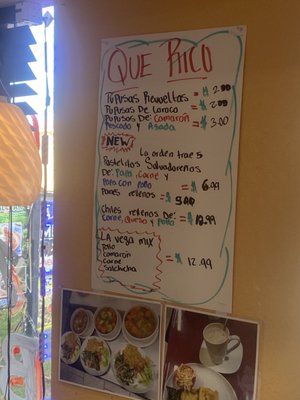 QUE RICO
Pupusas Revueltas = $ 2.00
Pupusas De Loroco = $ 2.00
Pupusas De: Camarón
Pescado y Asada = $ 3.00
NEW
La orden trae 5
Pastelitos Salvadoreños
De: Papa, Carne y
Papa con pollo = $ 6.99
Panes rellenos = $ 5.00
Chiles rellenos De:
Carne, Queso y Pollo = $ 12.99
LA Vega mix
Pollo
Camarón
Carne
Salchicha
= $ 12.99